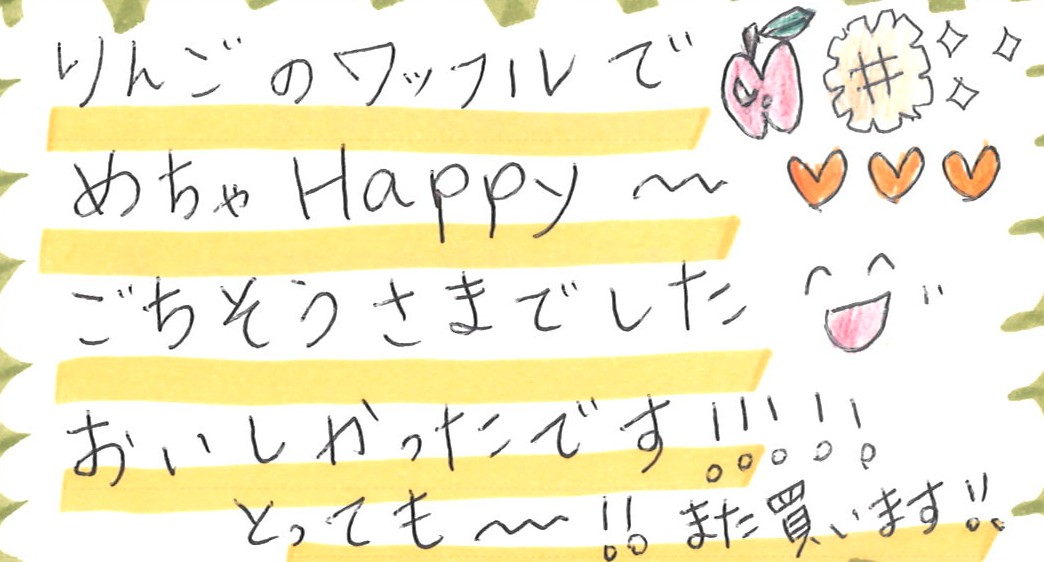 りんごのワッフルで
めちゃHappy〜
ごちそうさまでした
おいしかったです!!!!!
とっても〜!!また買います!!